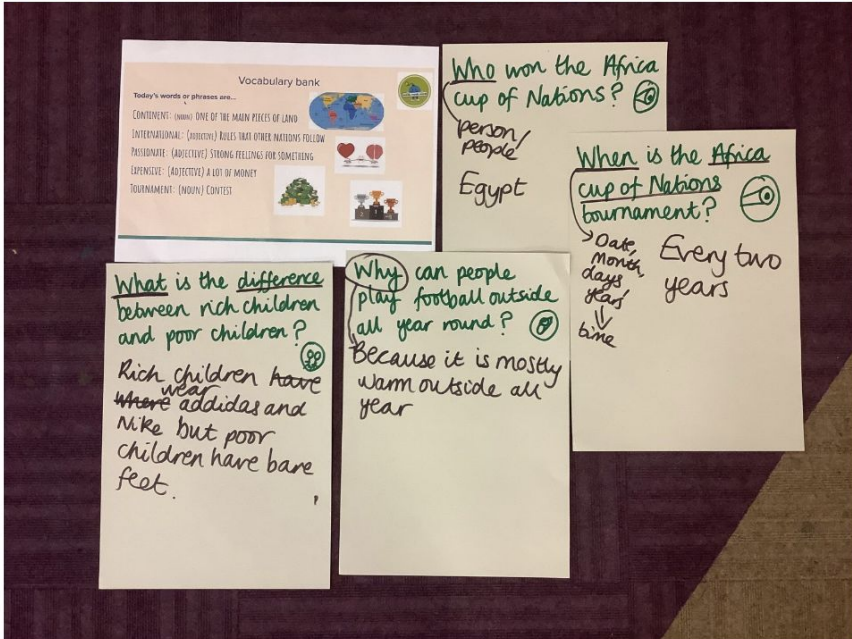 Vocabulary bank
Today's words or phrases are...
CONTINENT: (NOUN) ONE OF THE MAIN PIECES OF LAND
INTERNATIONAL: (ADJECTIVE) RULES THAT OTHER NATIONS FOLLOW
PASSIONATE: (ADJECTIVE) STRONG FEELINGS FOR SOMETHING
EXPENSIVE: (ADJECTIVE) A LOT OF MONEY
TOURNAMENT: (NOUN) CONTEST
Who won the Africa
cup of Nations?
person/
people
Egypt
When is the Africa
cup of Nations
tournament?
Date,
month,
days
years
time
Every two
years
What is the difference
between rich children
and poor children?
Rich children have
where wear addidas and
Nike but poor
children have bare
feet.
Why can people
play football outside
all year round?
Because it is mostly
warm outside all
year